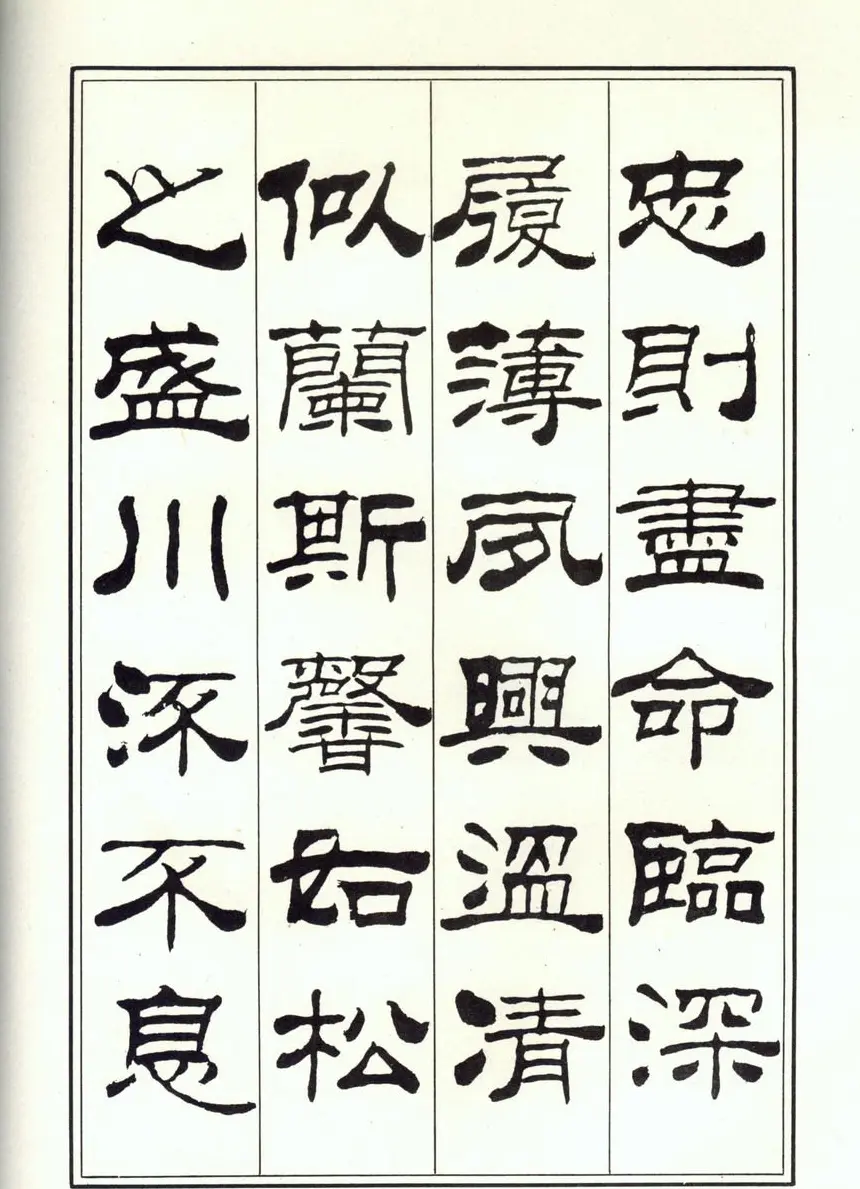 忠則盡命臨深
履薄夙興溫凊
似蘭斯馨如松
之盛川流不息